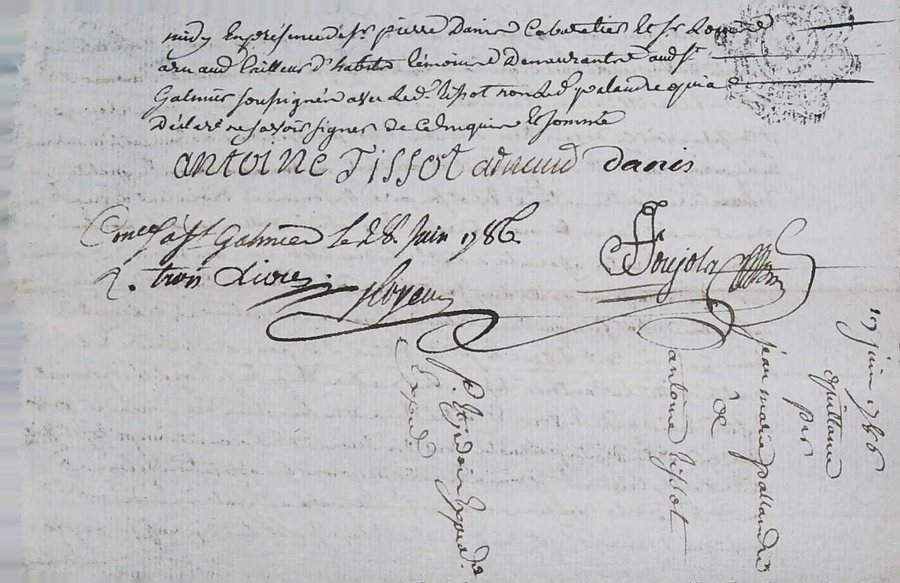 midy En présence de sr pierre Danis Cabaretier Et sr
arnaud tailleur d'habits témoins Demeurants aud. st
Galmier soussignés avec led. tissot non led. palandre qui a
Déclaré ne savoir signer de ce Enquis Et sommé
antoine Tissot arnaud danis
st Galmier le 28 Juin 1786
R. trois livres
19 juin 1786
quittance
par
jean marie pallandre
à
antoine tissot
Expédié